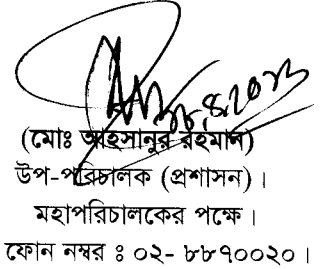 (মোঃ আহসানুর রহমান)
উপ-পরিচালক (প্রশাসন)।
মহাপরিচালকের পক্ষে।
ফোন নম্বর ঃ ০২- ৮৮৭০০২০।